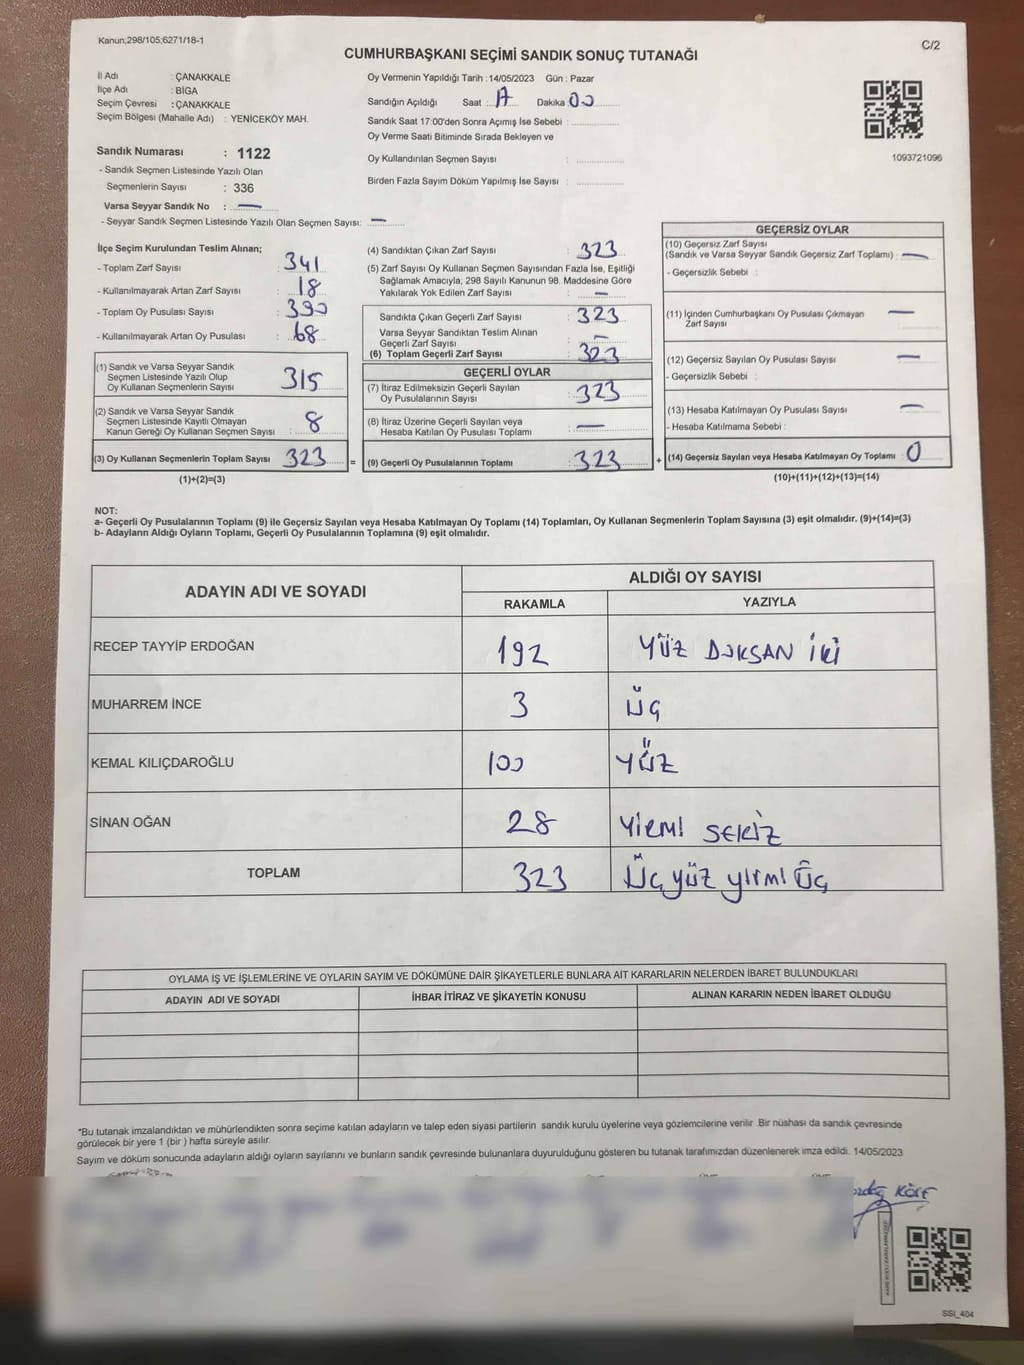 Kanun;298/105;6271/18-1
C/2
CUMHURBAŞKANI SEÇİMİ SANDIK SONUÇ TUTANAĞI
İl Adı : ÇANAKKALE
İlçe Adı : BİGA
Seçim Çevresi : ÇANAKKALE
Seçim Bölgesi (Mahalle Adı) : YENİCEKÖY MAH.
Sandık Numarası : 1122
- Sandık Seçmen Listesinde Yazılı Olan
Seçmenlerin Sayısı : 336
Varsa Seyyar Sandık No : —
- Seyyar Sandık Seçmen Listesinde Yazılı Olan Seçmen Sayısı: —
Oy Vermenin Yapıldığı Tarih :14/05/2023 Gün : Pazar
Sandığın Açıldığı Saat : 17 Dakika 00
Sandık Saat 17:00'den Sonra Açımış İse Sebebi :
Oy Verme Saati Bitiminde Sırada Bekleyen ve
Oy Kullandırılan Seçmen Sayısı :
Birden Fazla Sayım Döküm Yapılmış İse Sayısı :
1093721096
İlçe Seçim Kurulundan Teslim Alınan;
- Toplam Zarf Sayısı : 341
- Kullanılmayarak Artan Zarf Sayısı : 18
- Toplam Oy Pusulası Sayısı : 390
- Kullanılmayarak Artan Oy Pusulası : 68
(1) Sandık ve Varsa Seyyar Sandık
Seçmen Listesinde Yazılı Olup
Oy Kullanan Seçmenlerin Sayısı 315
(2) Sandık ve Varsa Seyyar Sandık
Seçmen Listesinde Kayıtlı Olmayan
Kanun Gereği Oy Kullanan Seçmen Sayısı : 8
(3) Oy Kullanan Seçmenlerin Toplam Sayısı 323 =
(1)+(2)=(3)
(4) Sandıktan Çıkan Zarf Sayısı : 323
(5) Zarf Sayısı Oy Kullanan Seçmen Sayısından Fazla İse, Eşitliği
Sağlamak Amacıyla, 298 Sayılı Kanunun 98. Maddesine Göre
Yakılarak Yok Edilen Zarf Sayısı : —
Sandıkta Çıkan Geçerli Zarf Sayısı : 323
Varsa Seyyar Sandıktan Teslim Alınan
Geçerli Zarf Sayısı : —
(6) Toplam Geçerli Zarf Sayısı : 323
GEÇERLİ OYLAR
(7) İtiraz Edilmeksizin Geçerli Sayılan
Oy Pusulalarının Sayısı : 323
(8) İtiraz Üzerine Geçerli Sayılan veya
Hesaba Katılan Oy Pusulası Toplamı : —
(9) Geçerli Oy Pusulalarının Toplamı : 323 +
GEÇERSİZ OYLAR
(10) Geçersiz Zarf Sayısı
(Sandık ve Varsa Seyyar Sandık Geçersiz Zarf Toplamı) : —
- Geçersizlik Sebebi :
(11) İçinden Cumhurbaşkanı Oy Pusulası Çıkmayan
Zarf Sayısı : —
(12) Geçersiz Sayılan Oy Pusulası Sayısı : —
- Geçersizlik Sebebi :
(13) Hesaba Katılmayan Oy Pusulası Sayısı : —
- Hesaba Katılmama Sebebi :
(14) Geçersiz Sayılan veya Hesaba Katılmayan Oy Toplamı : 0
(10)+(11)+(12)+(13)=(14)
NOT:
a- Geçerli Oy Pusulalarının Toplamı (9) ile Geçersiz Sayılan veya Hesaba Katılmayan Oy Toplamı (14) Toplamları, Oy Kullanan Seçmenlerin Toplam Sayısına (3) eşit olmalıdır. (9)+(14)=(3)
b- Adayların Aldığı Oyların Toplamı, Geçerli Oy Pusulalarının Toplamına (9) eşit olmalıdır.
ADAYIN ADI VE SOYADI
ALDIĞI OY SAYISI
RAKAMLA YAZIYLA
RECEP TAYYİP ERDOĞAN 192 YÜZ DOKSAN İKİ
MUHARREM İNCE 3 ÜÇ
KEMAL KILIÇDAROĞLU 100 YÜZ
SİNAN OĞAN 28 YİRMİ SEKİZ
TOPLAM 323 ÜÇ YÜZ YİRMİ ÜÇ
OYLAMA İŞ VE İŞLEMLERİNE VE OYLARIN SAYIM VE DÖKÜMÜNE DAİR ŞİKAYETLERLE BUNLARA AİT KARARLARIN NELERDEN İBARET BULUNDUKLARI
ADAYIN ADI VE SOYADI İHBAR İTİRAZ VE ŞİKAYETİN KONUSU ALINAN KARARIN NEDEN İBARET OLDUĞU
*Bu tutanak imzalandıktan ve mühürlendikten sonra seçime katılan adayların ve talep eden siyasi partilerin sandık kurulu üyelerine veya gözlemcilerine verilir. Bir nüshası da sandık çevresinde
görülecek bir yere 1 (bir ) hafta süreyle asılır.
Sayım ve döküm sonucunda adayların aldığı oyların sayılarını ve bunların sandık çevresinde bulunanlara duyurulduğunu gösteren bu tutanak tarafımızdan düzenlenerek imza edildi. 14/05/2023
KÖSE
SSI_404